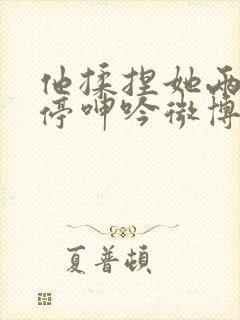 他揉捏她两
停呻吟微博
夏普顿